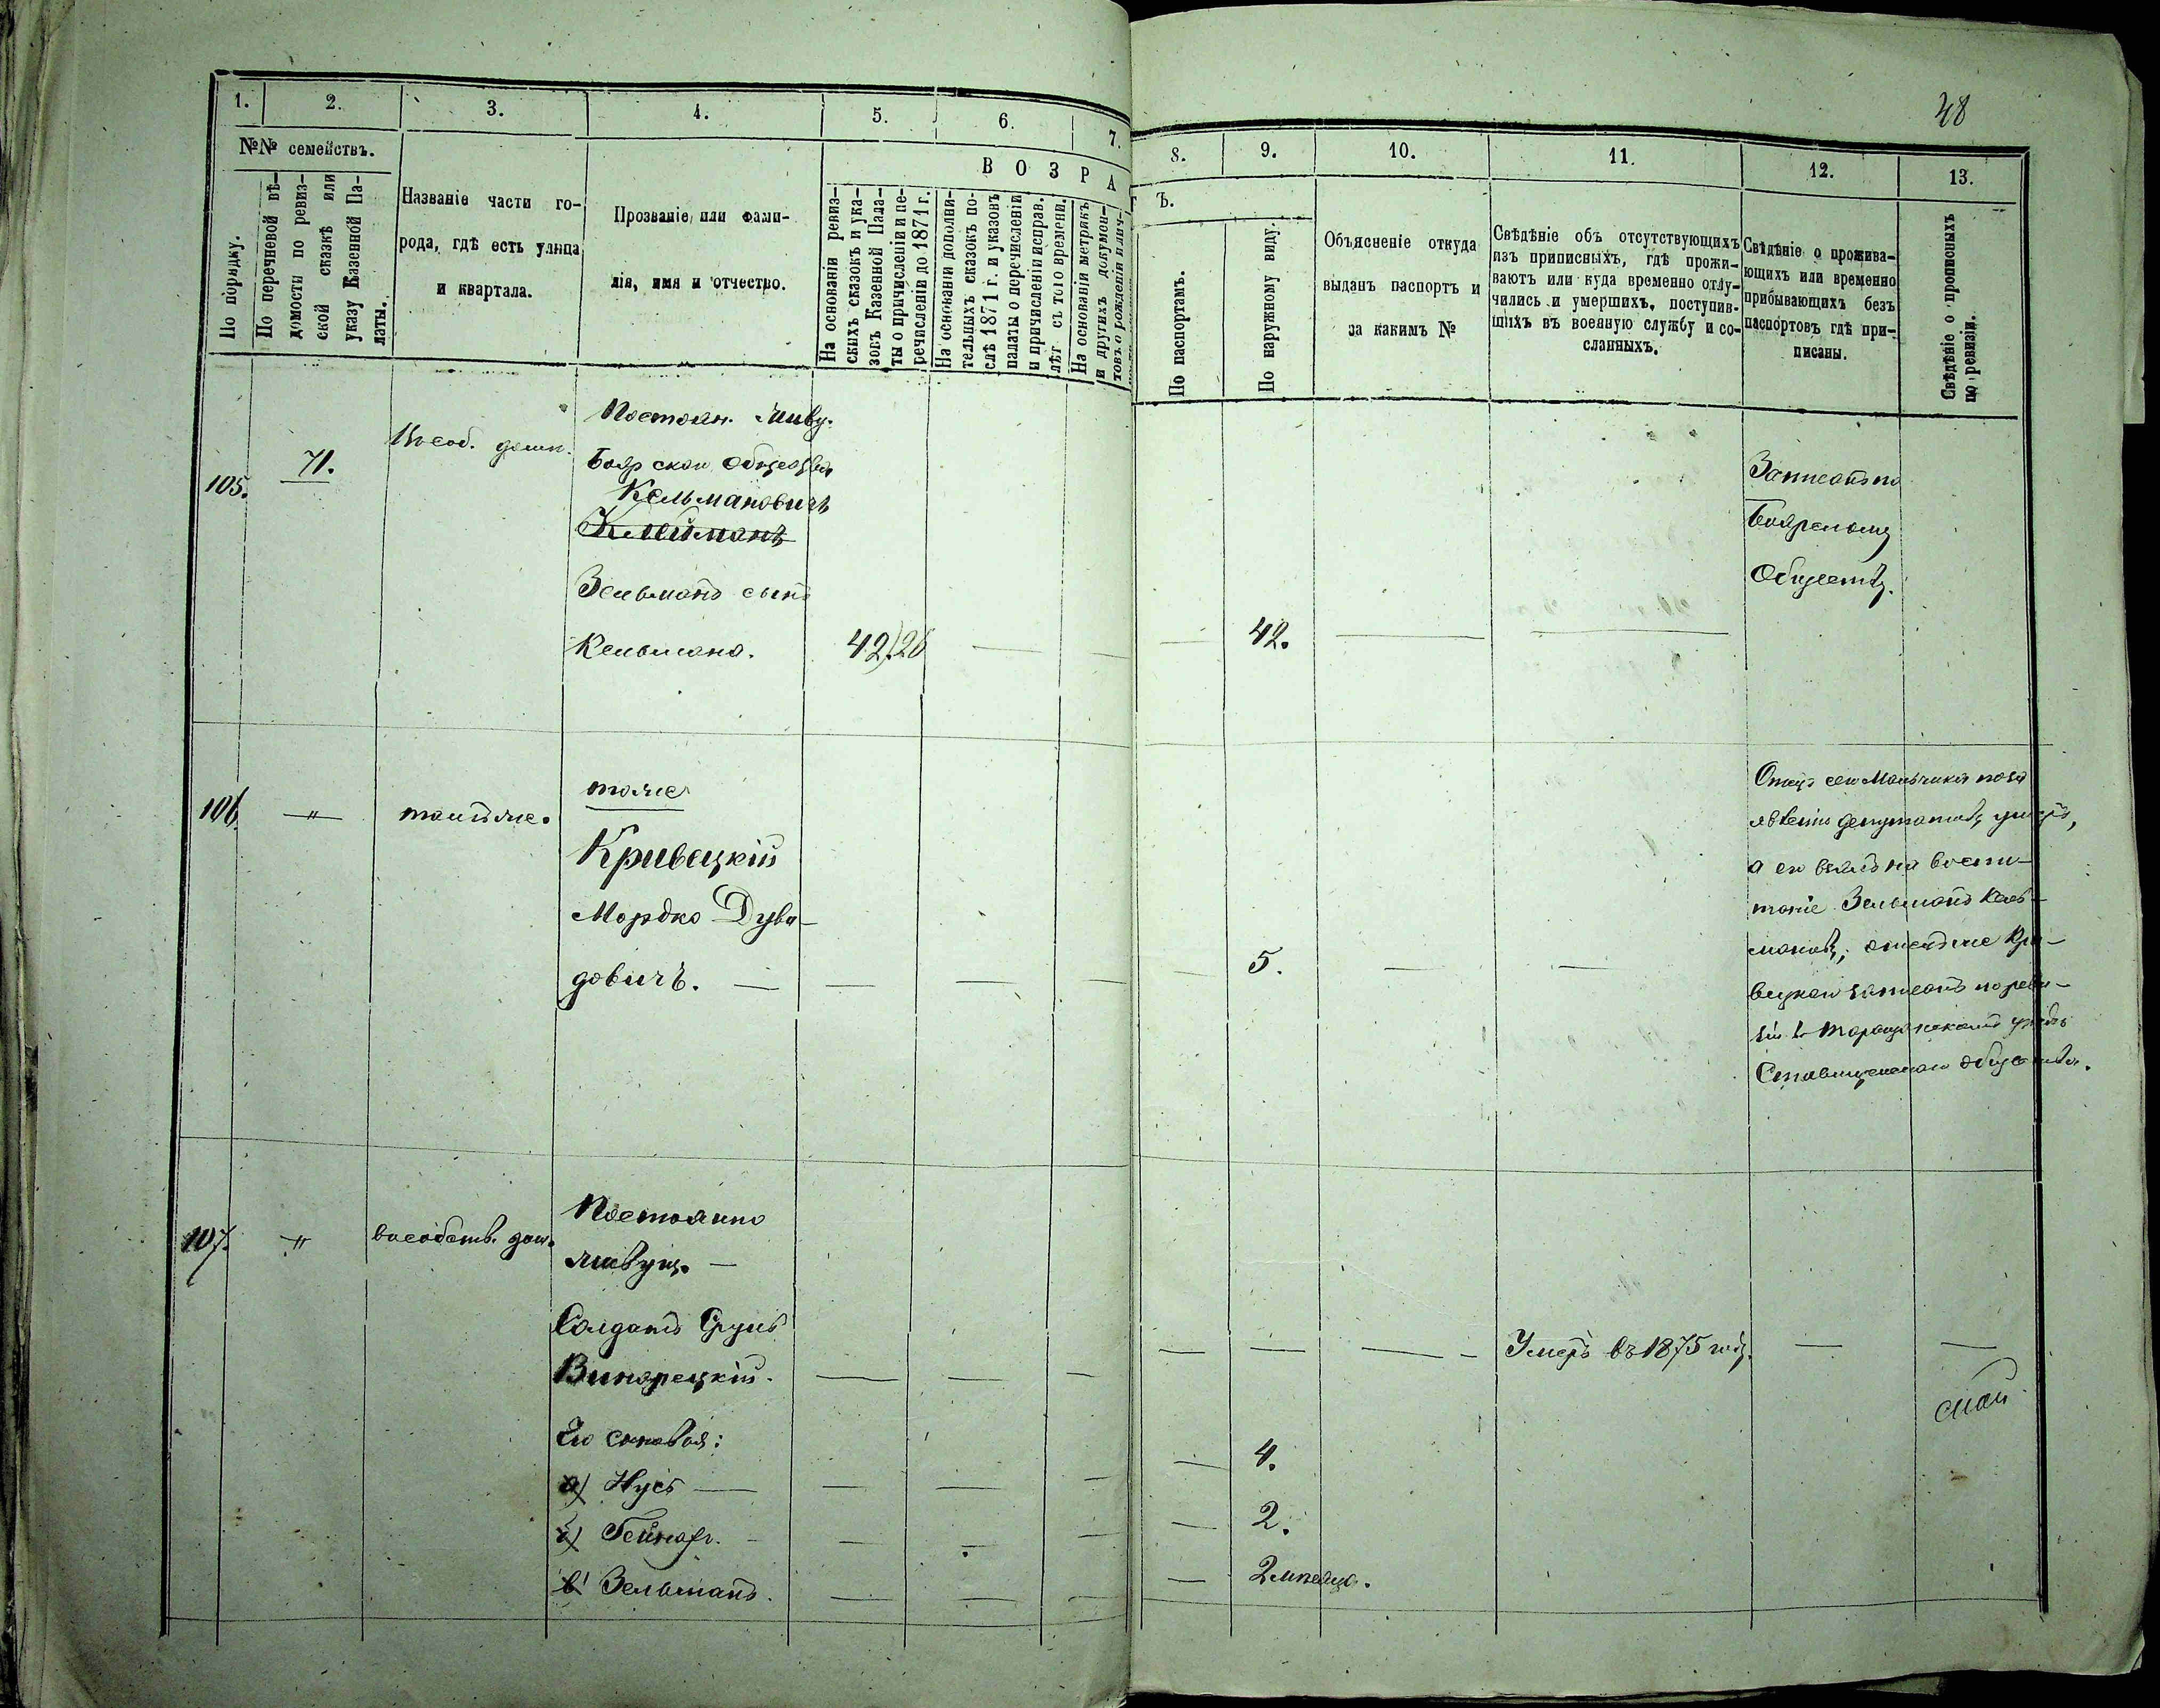 48
1. 2. 3. 4. 5. 6. 7. 8. 9. 10. 11. 12. 13.
№№ семействъ.
По порядку.
По перечневой вѣ-
домости по ревиз-
ской сказкѣ или
указу Казенной Па-
латы.
Названіе части го-
рода, гдѣ есть улица
и квартала.
Прозваніе или фами-
лія, имя и отчество.
ВОЗРАСТЪ.
На основаніи ревиз-
скихъ сказокъ и ука-
зовъ Казенной Пала-
ты о причисленіи и пе-
речисленіи до 1871 г.
На основаніи дополни-
тельныхъ сказокъ по-
слѣ 1871 г. и указовъ
палаты о перечисленіи
и причисленіи исправ.
лѣт съ того времени.
На основаніи метрикъ
и другихъ докумен-
товъ о рожденіи
По паспортамъ.
По наружному виду.
Объясненіе откуда
выданъ паспортъ и
за какимъ №
Свѣдѣніе объ отсутствующихъ
изъ приписныхъ, гдѣ прожи-
ваютъ или куда временно отлу-
чились и умершихъ, поступив-
шихъ въ военную службу и со-
сланныхъ.
Свѣдѣніе о прожива-
ющихъ или временно
прибывающихъ безъ
паспортовъ гдѣ при-
писаны.
Свѣдѣніе о прописныхъ
по ревизіи.
105. 71. Въ соб. домѣ.
Постоян. живу.
Бояр ском Общества
Кельмановичъ
Клейманъ
Зельманъ сынъ
Кельмана. 42/26 — — — 42. — —
Записанъ по
Боярскому
Обществу.
106. — " — тамъ же.
тоже
Кривецкій
Мордко Дува-
довичъ. — — — — — 5. — —
Отецъ сего Мальчика
явленіи депутатовъ умеръ,
а его взялъ на воспи-
таніе Зельманъ Кель-
мановъ; отецъ же Кри-
вецкаго записанъ по реви-
зіи в Таращанскомъ уѣздѣ
Ставищенскаго общества.
107. — " в собств. дом.
Постоянно
живущ. —
Солдатъ Сруль
Винарецкій. — — — — — — — Умеръ въ 1875 году. — —
Его сыновья:
а) Нусъ — — — — — 4.
б) — — — — — 2.
в) Зельманъ. — — — — 2 мѣсяца.